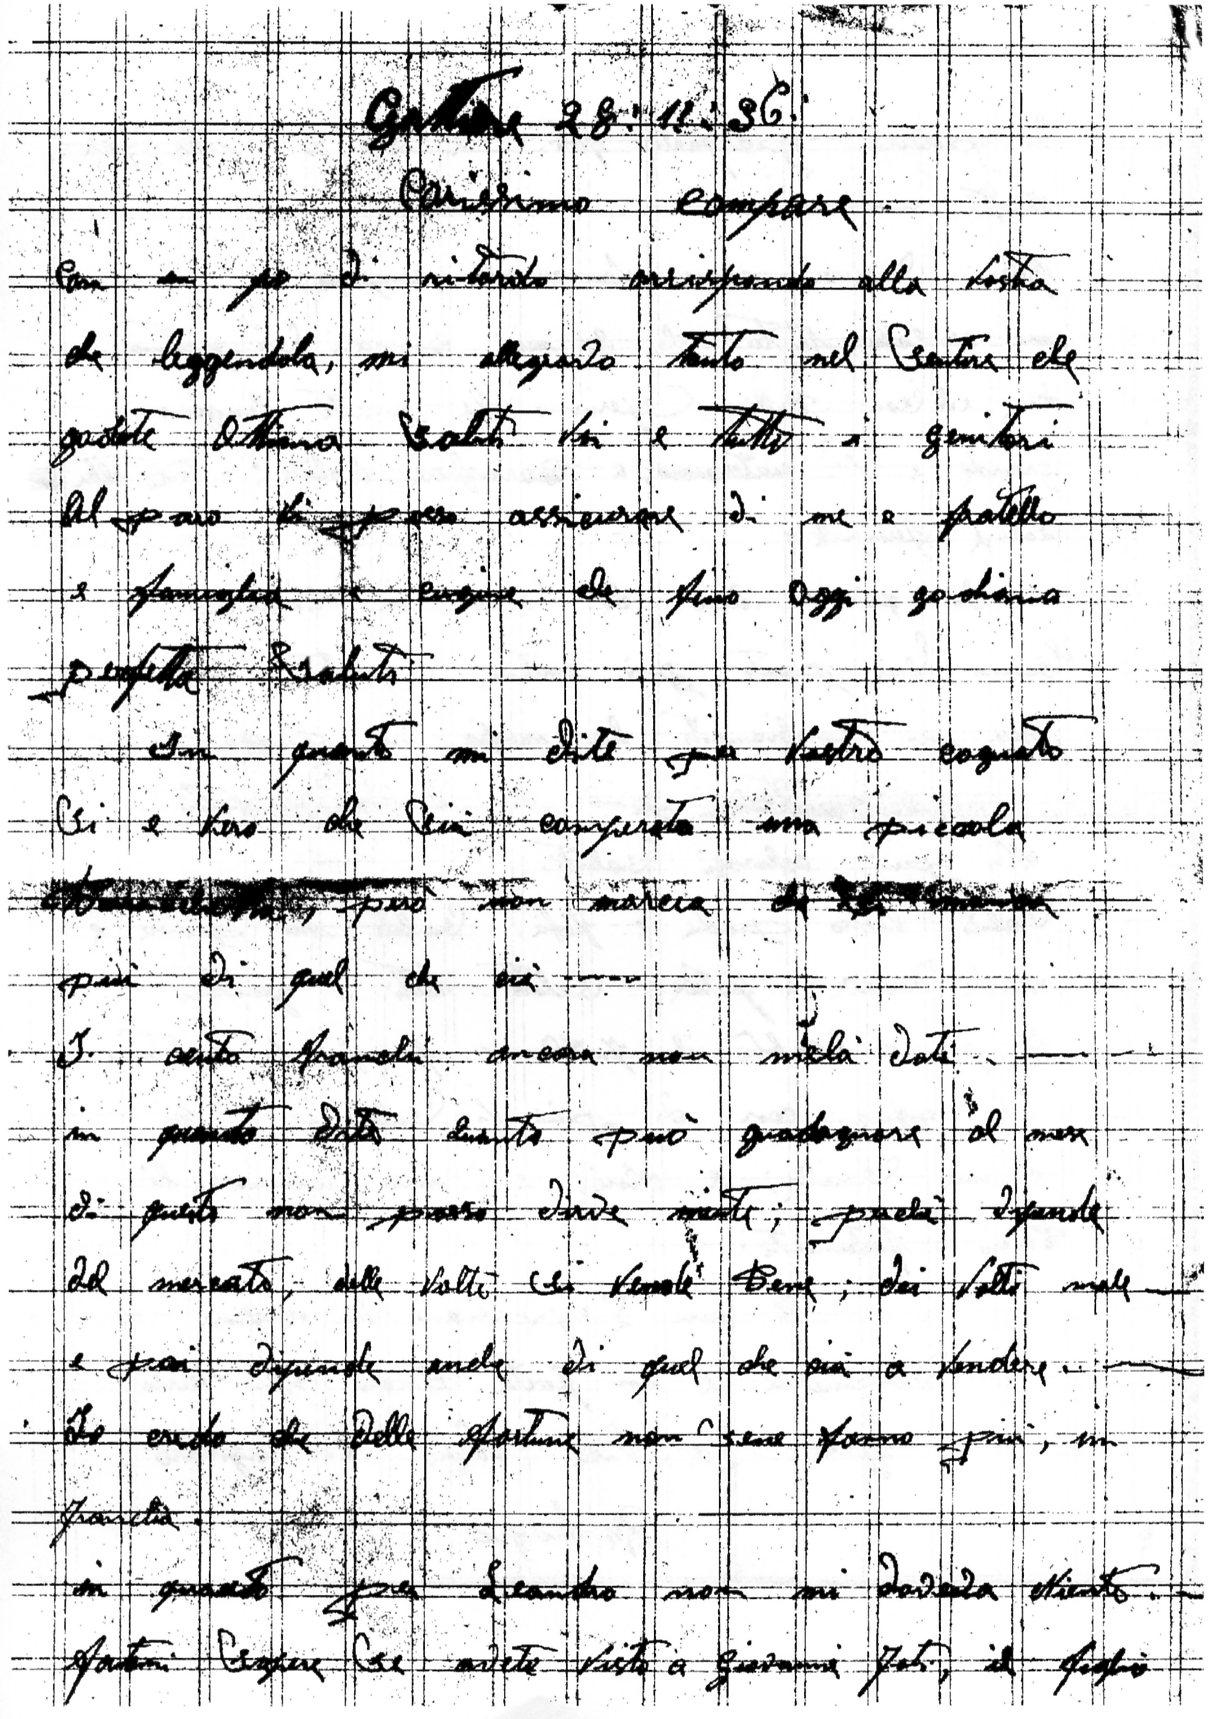 Gattiere 28: 11: 36:
Carissimo compare.
Con un po di ritardo arrispondo alla vostra
che leggendola, mi allegravo tanto nel Sentire che
godete Ottima Saluti voi e tutti i genitori
Al paro vi posso assicurare di me e fratello
e famiglia e cugine che fino Oggi godiamo
perfetta Saluti
In quanto mi dite per vostro cognato
Si e vero che Sia comperato una piccola
però non marcia da
più di quel che cià ----
I cento franchi ancora non mielà dati.
in quanto dite quanto può guadagnare al mese
di questo non posso dirve niente; perchè dipende
del mercato, delle volte Si vende Bene; dei volti male
e poi dipende anche di quel che cià a vendere.
Io credo che delle fortune non sene fanno più, in
francia.
in quanto per Leandro non mi doveva niento.
fatemi Sapere Se avete visto a Giovanni Foti, il figlio